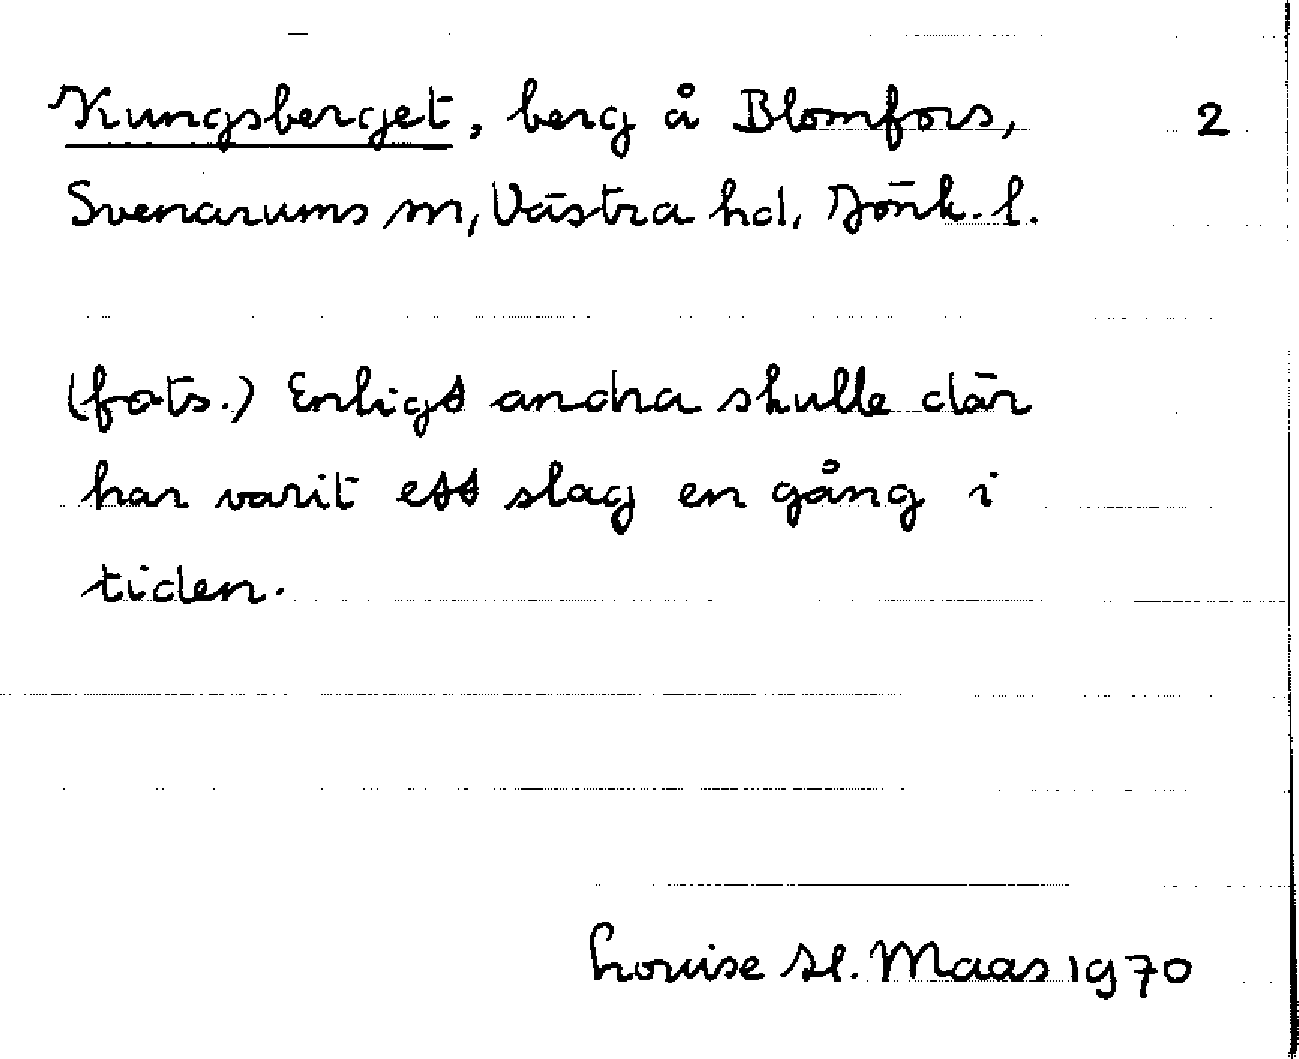 Kungsberget, berg å Blomfors, 2
Svenarums sn, Västra hd, Jönk. l.
(forts.) Enligt andra skulle där
har varit ett slag en gång i
tiden.
Louise H. Maas 1970